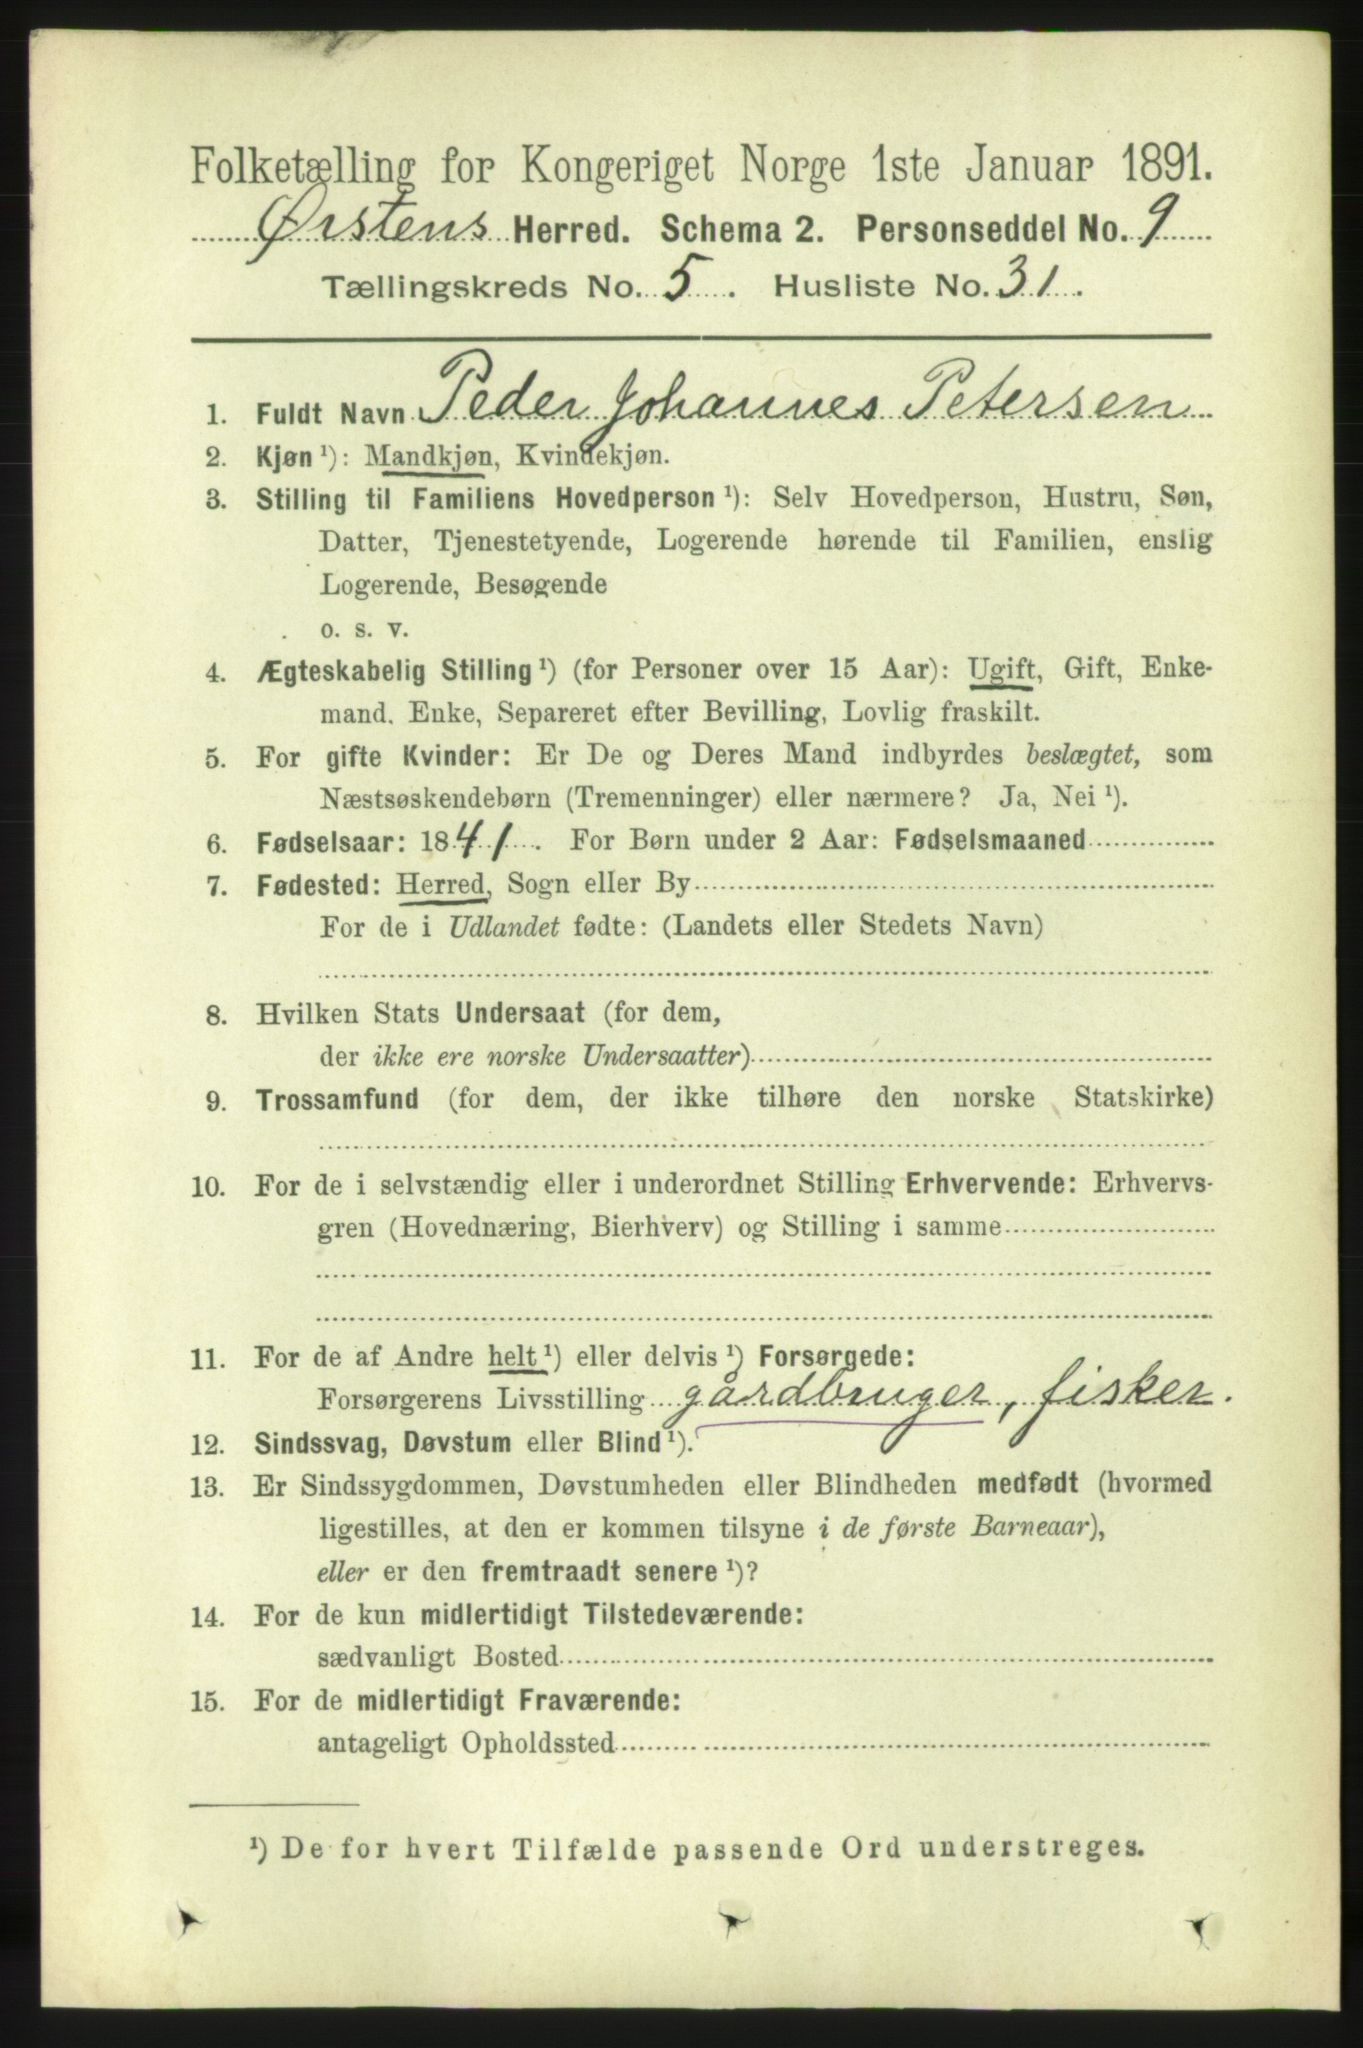 Folketælling for Kongeriget Norge 1ste Januar 1891.
Ørstens Herred. Schema 2. Personseddel No. 9
Tællingskreds No. 5. Husliste No. 31.
1. Fuldt Navn Peder Johannes Petersen
2. Kjøn ¹): Mandkjøn, Kvindekjøn.
3. Stilling til Familiens Hovedperson ¹): Selv Hovedperson, Hustru, Søn,
Datter, Tjenestetyende, Logerende hørende til Familien, enslig
Logerende, Besøgende
o. s. v.
4. Ægteskabelig Stilling ¹) (for Personer over 15 Aar): Ugift, Gift, Enke-
mand, Enke, Separeret efter Bevilling, Lovlig fraskilt.
5. For gifte Kvinder: Er De og Deres Mand indbyrdes beslægtet, som
Næstsøskendebørn (Tremenninger) eller nærmere? Ja, Nei ¹).
6. Fødselsaar: 1841. For Børn under 2 Aar: Fødselsmaaned
7. Fødested: Herred, Sogn eller By
For de i Udlandet fødte: (Landets eller Stedets Navn)
8. Hvilken Stats Undersaat (for dem,
der ikke ere norske Undersaatter)
9. Trossamfund (for dem, der ikke tilhøre den norske Statskirke)
10. For de i selvstændig eller i underordnet Stilling Erhvervende: Erhvervs-
gren (Hovednæring, Bierhverv) og Stilling i samme
11. For de af Andre helt ¹) eller delvis ¹) Forsørgede:
Forsørgerens Livsstilling gårdbruger, fisker.
12. Sindssvag, Døvstum eller Blind ¹).
13. Er Sindssygdommen, Døvstumheden eller Blindheden medfødt (hvormed
ligestilles, at den er kommen tilsyne i de første Barneaar),
eller er den fremtraadt senere ¹)?
14. For de kun midlertidigt Tilstedeværende:
sædvanligt Bosted
15. For de midlertidigt Fraværende:
antageligt Opholdssted
¹) De for hvert Tilfælde passende Ord understreges.